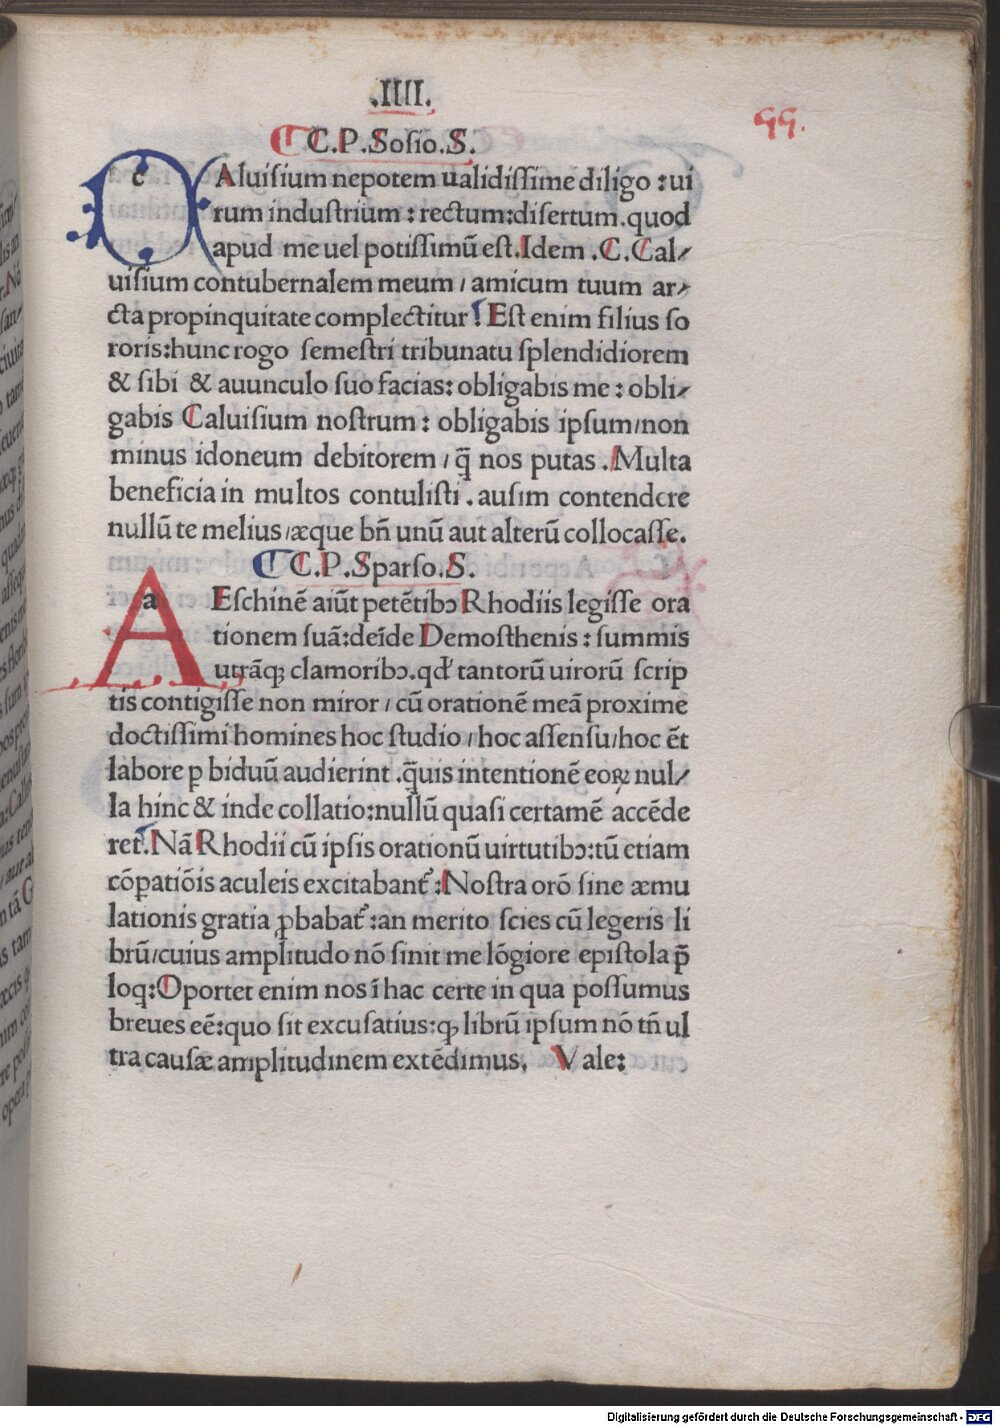 .IIII.
99.
C.P.Sosio.S.
cAluisium nepotem ualidissime diligo : ui
rum industrium : rectum:disertum.quod
apud me uel potissimũ est.Idem .C.Cal-
uisium contubernalem meum / amicum tuum ar-
cta propinquitate complectitur: Est enim filius so
roris:hunc rogo semestri tribunatu splendidiorem
& sibi & auunculo suo facias: obligabis me : obli-
gabis Caluisium nostrum : obligabis ipsum/non
minus idoneum debitorem / q̃ nos putas .Multa
beneficia in multos contulisti . ausim contendere
nullũ te melius /æque bñ unũ aut alterũ collocasse.
C.P.Sparso.S.
aEschinẽ aiũt petẽtibꝰ Rhodiis legisse ora
tionem suã:deĩde Demosthenis : summis
utrãqꝫ clamoribꝰ.qđ tantorũ uirorũ scrip
tis contigisse non miror / cũ orationẽ meã proxime
doctissimi homines hoc studio /hoc assensu/hoc ẽt
labore ꝑ biduũ audierint .q̃uis intentionẽ eoꝝ nul-
la hinc & inde collatio:nullũ quasi certamẽ accẽde
ret.Nã Rhodii cũ ipsis orationũ uirtutibꝰ:tũ etiam
cõꝑatiõis aculeis excitabant᷑:Nostra orõ sine æmu
lationis gratia ꝓbabat᷑:an merito scies cũ legeris li
brũ/cuius amplitudo nõ sinit me lõgiore epistola p̃
loq:Oportet enim nos ĩ hac certe in qua possumus
breues eẽ:quo sit excusatius:ꝙ librũ ipsum nõ tñ ul
tra causæ amplitudinem extẽdimus. Vale:
Digitalisierung gefördert durch die Deutsche Forschungsgemeinschaft - DFG